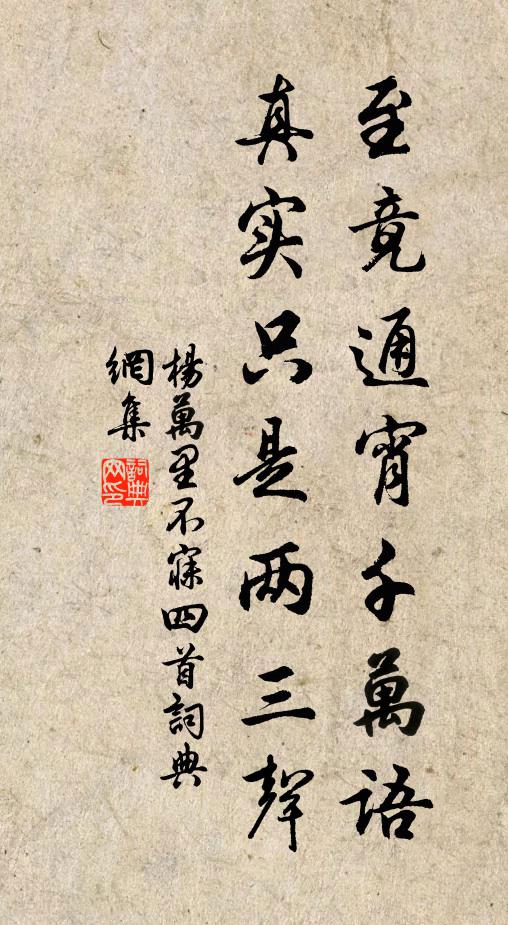 至竟通宵千萬語
真实只是两三聲
楊萬里不寐四首詞典
網集
詞典
网印